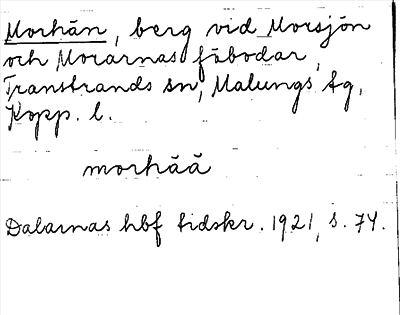 Morhån, berg vid Morsjön
och Morarnas fäbodar,
Transtrands sn, Malungs tg,
Kopp. l.
morhåă
Dalarnas hbf tidskr. 1921, s. 74.